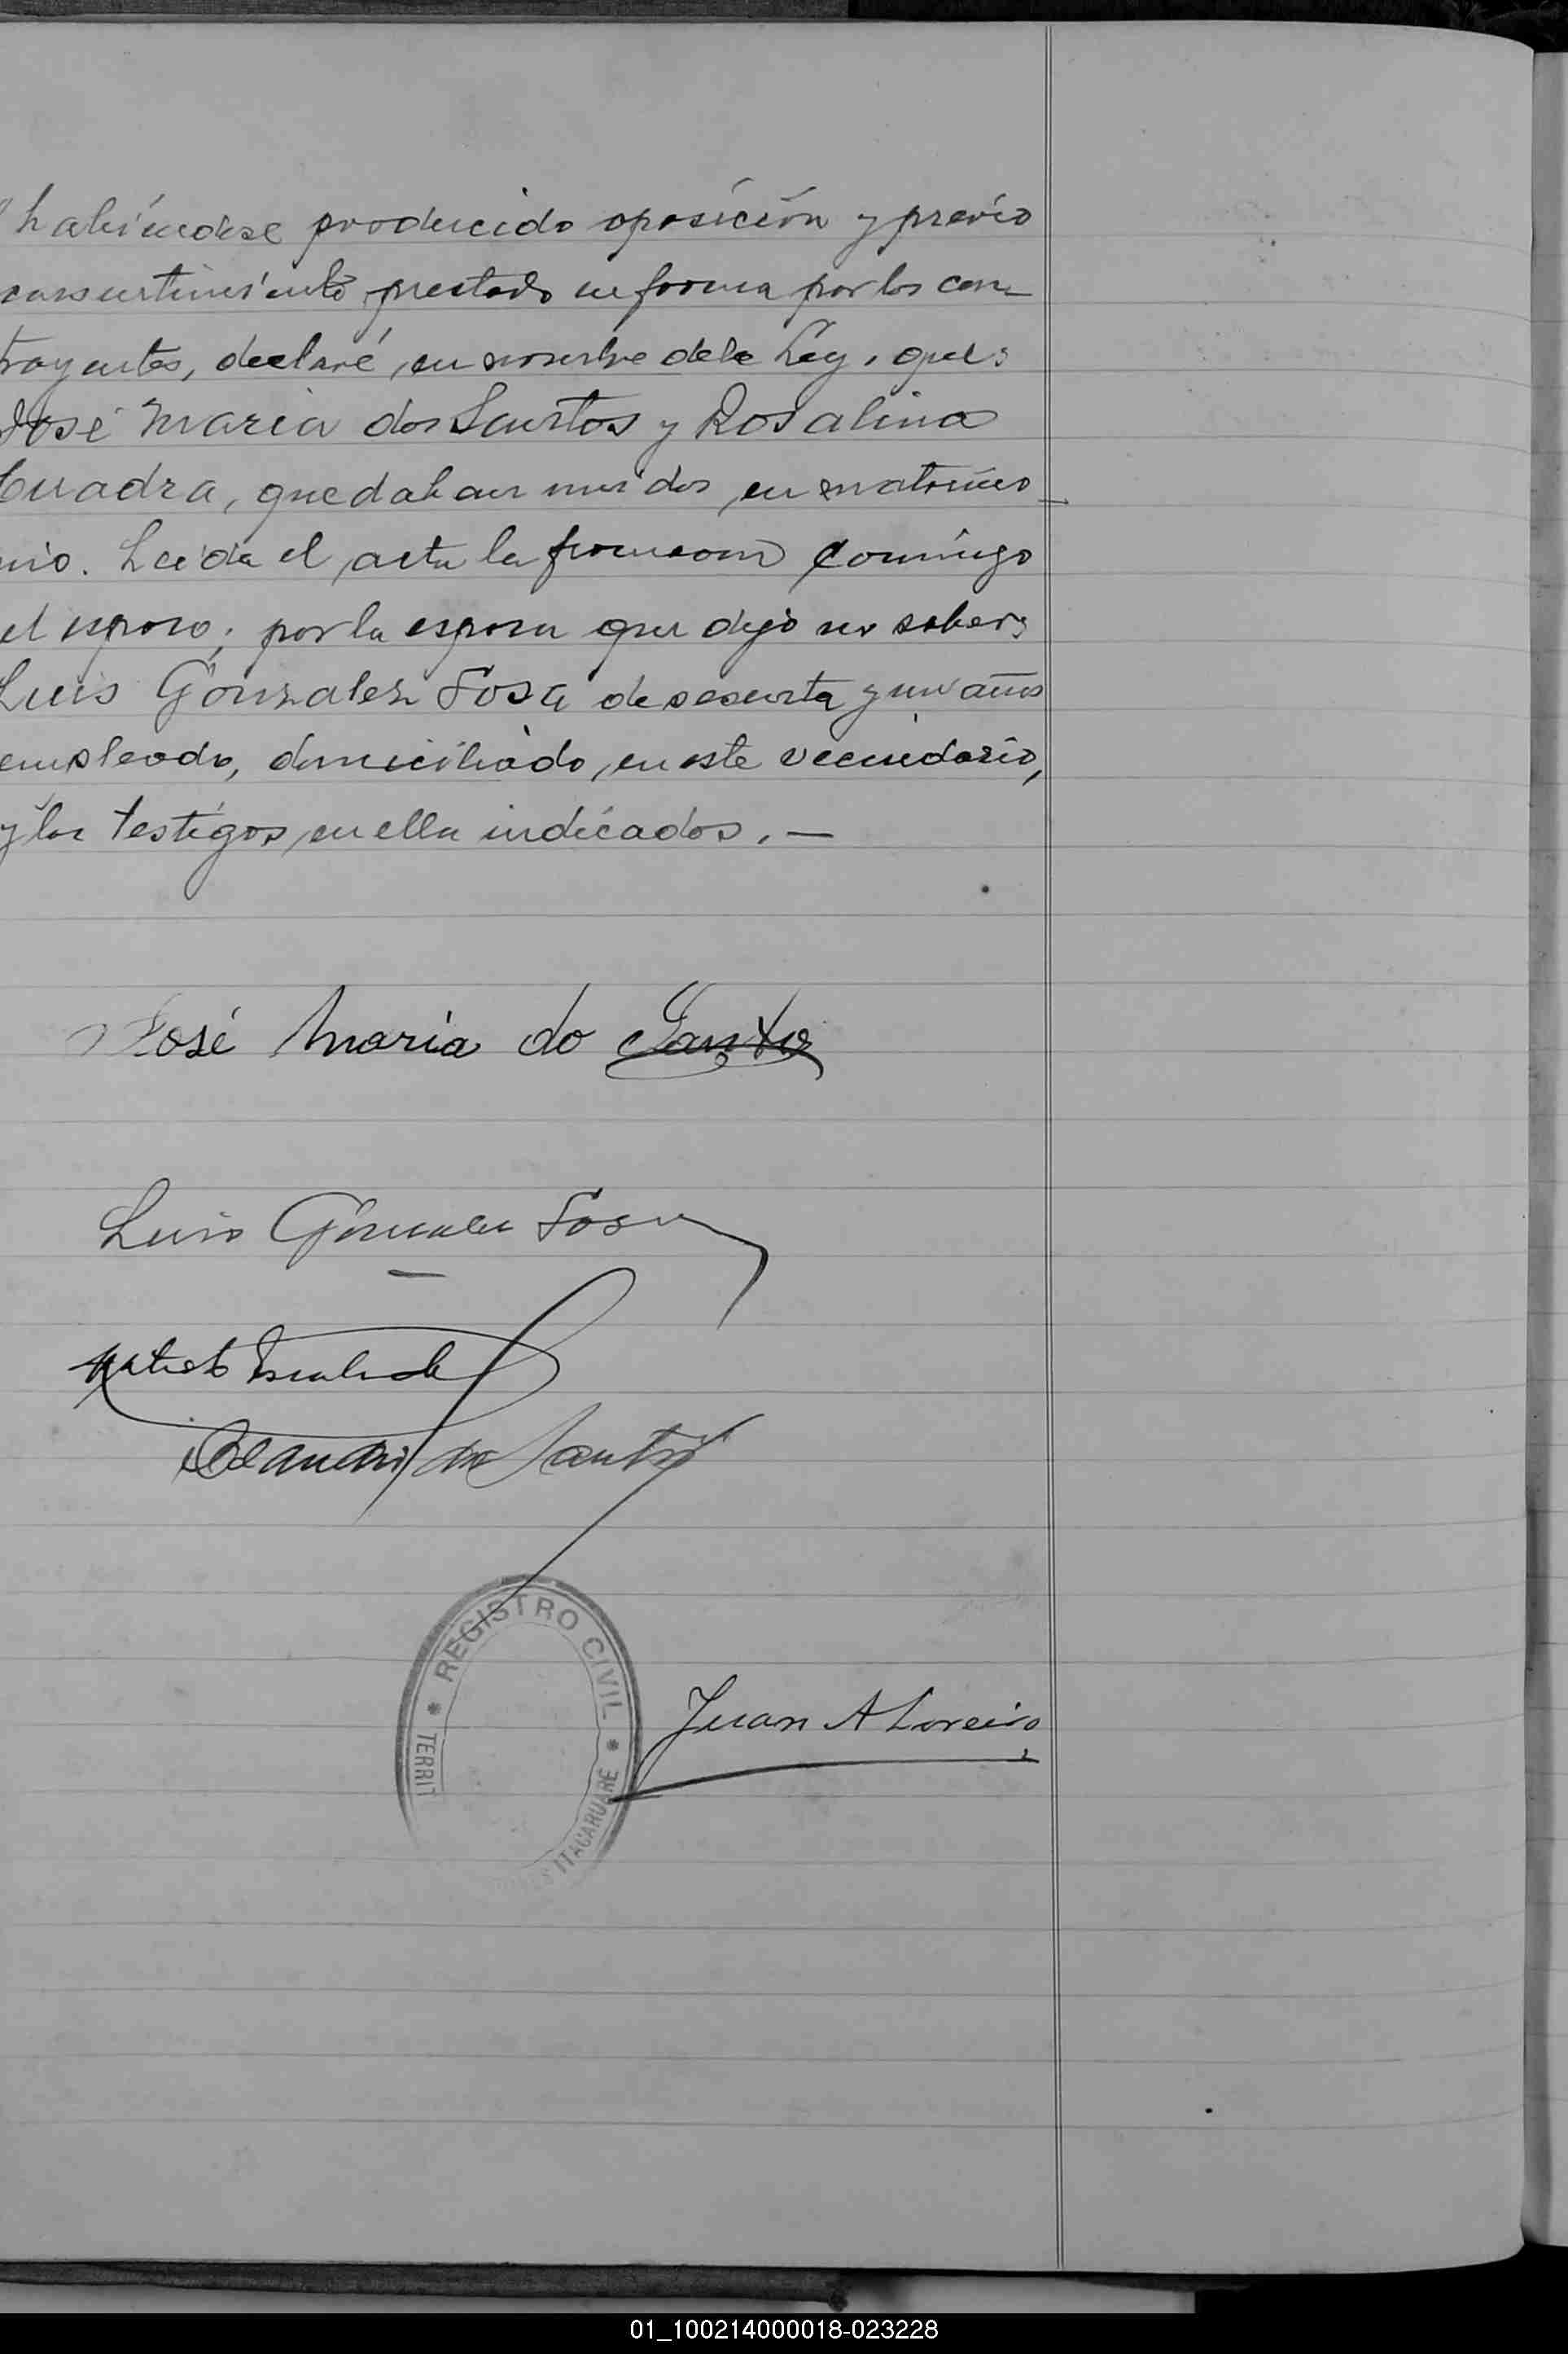 habiéndose producido oposición y previo
consentimiento prestado en forma por los con-
trayentes, declaré, en nombre de la Ley, que:
José Maria dos Santos y Rosalina
Cuadra, quedaban unidos en matrimo-
nio. Leida el acta la firmaron conmigo
el esposo; por la esposa que dijo no saber;
Luis Gonzalez Sosa de sesenta y un años
empleado, domiciliado, en este vecindario,
y los testigos en ella indicados. —
José Maria do Santos
Luis Gonzalez Sosa
dos Santos
REGISTRO CIVIL
TERRIT
ITACARUARE
Juan A Loreiro
01_100214000018-023228